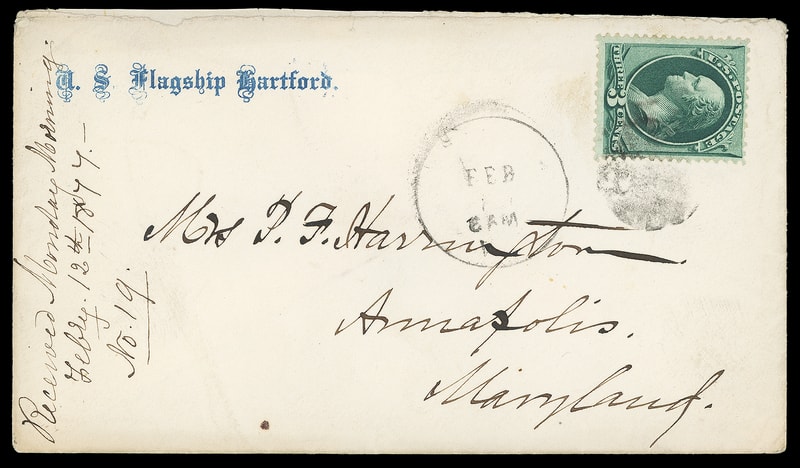 U. S. Flagship Hartford.
U.S. POSTAGE
THREE 3 CENTS
FEB
8 AM
Mrs P. F. Harrington.
Annapolis.
Maryland.
Received Monday Morning.
Febry. 12th 1877.—
No. 19.